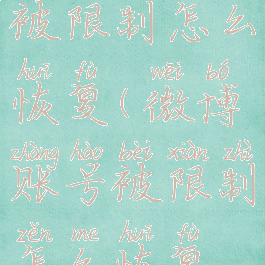 被限制怎么
huī fù wēi bó
恢复(微博
zhàng hào bèi xiàn zhì
账号被限制
zěn me huī fù
怎么恢复